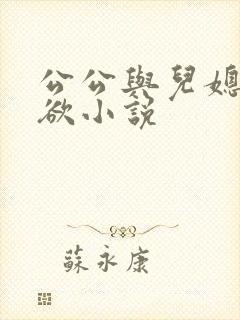 公公與兒媳
欲小說
蘇永康